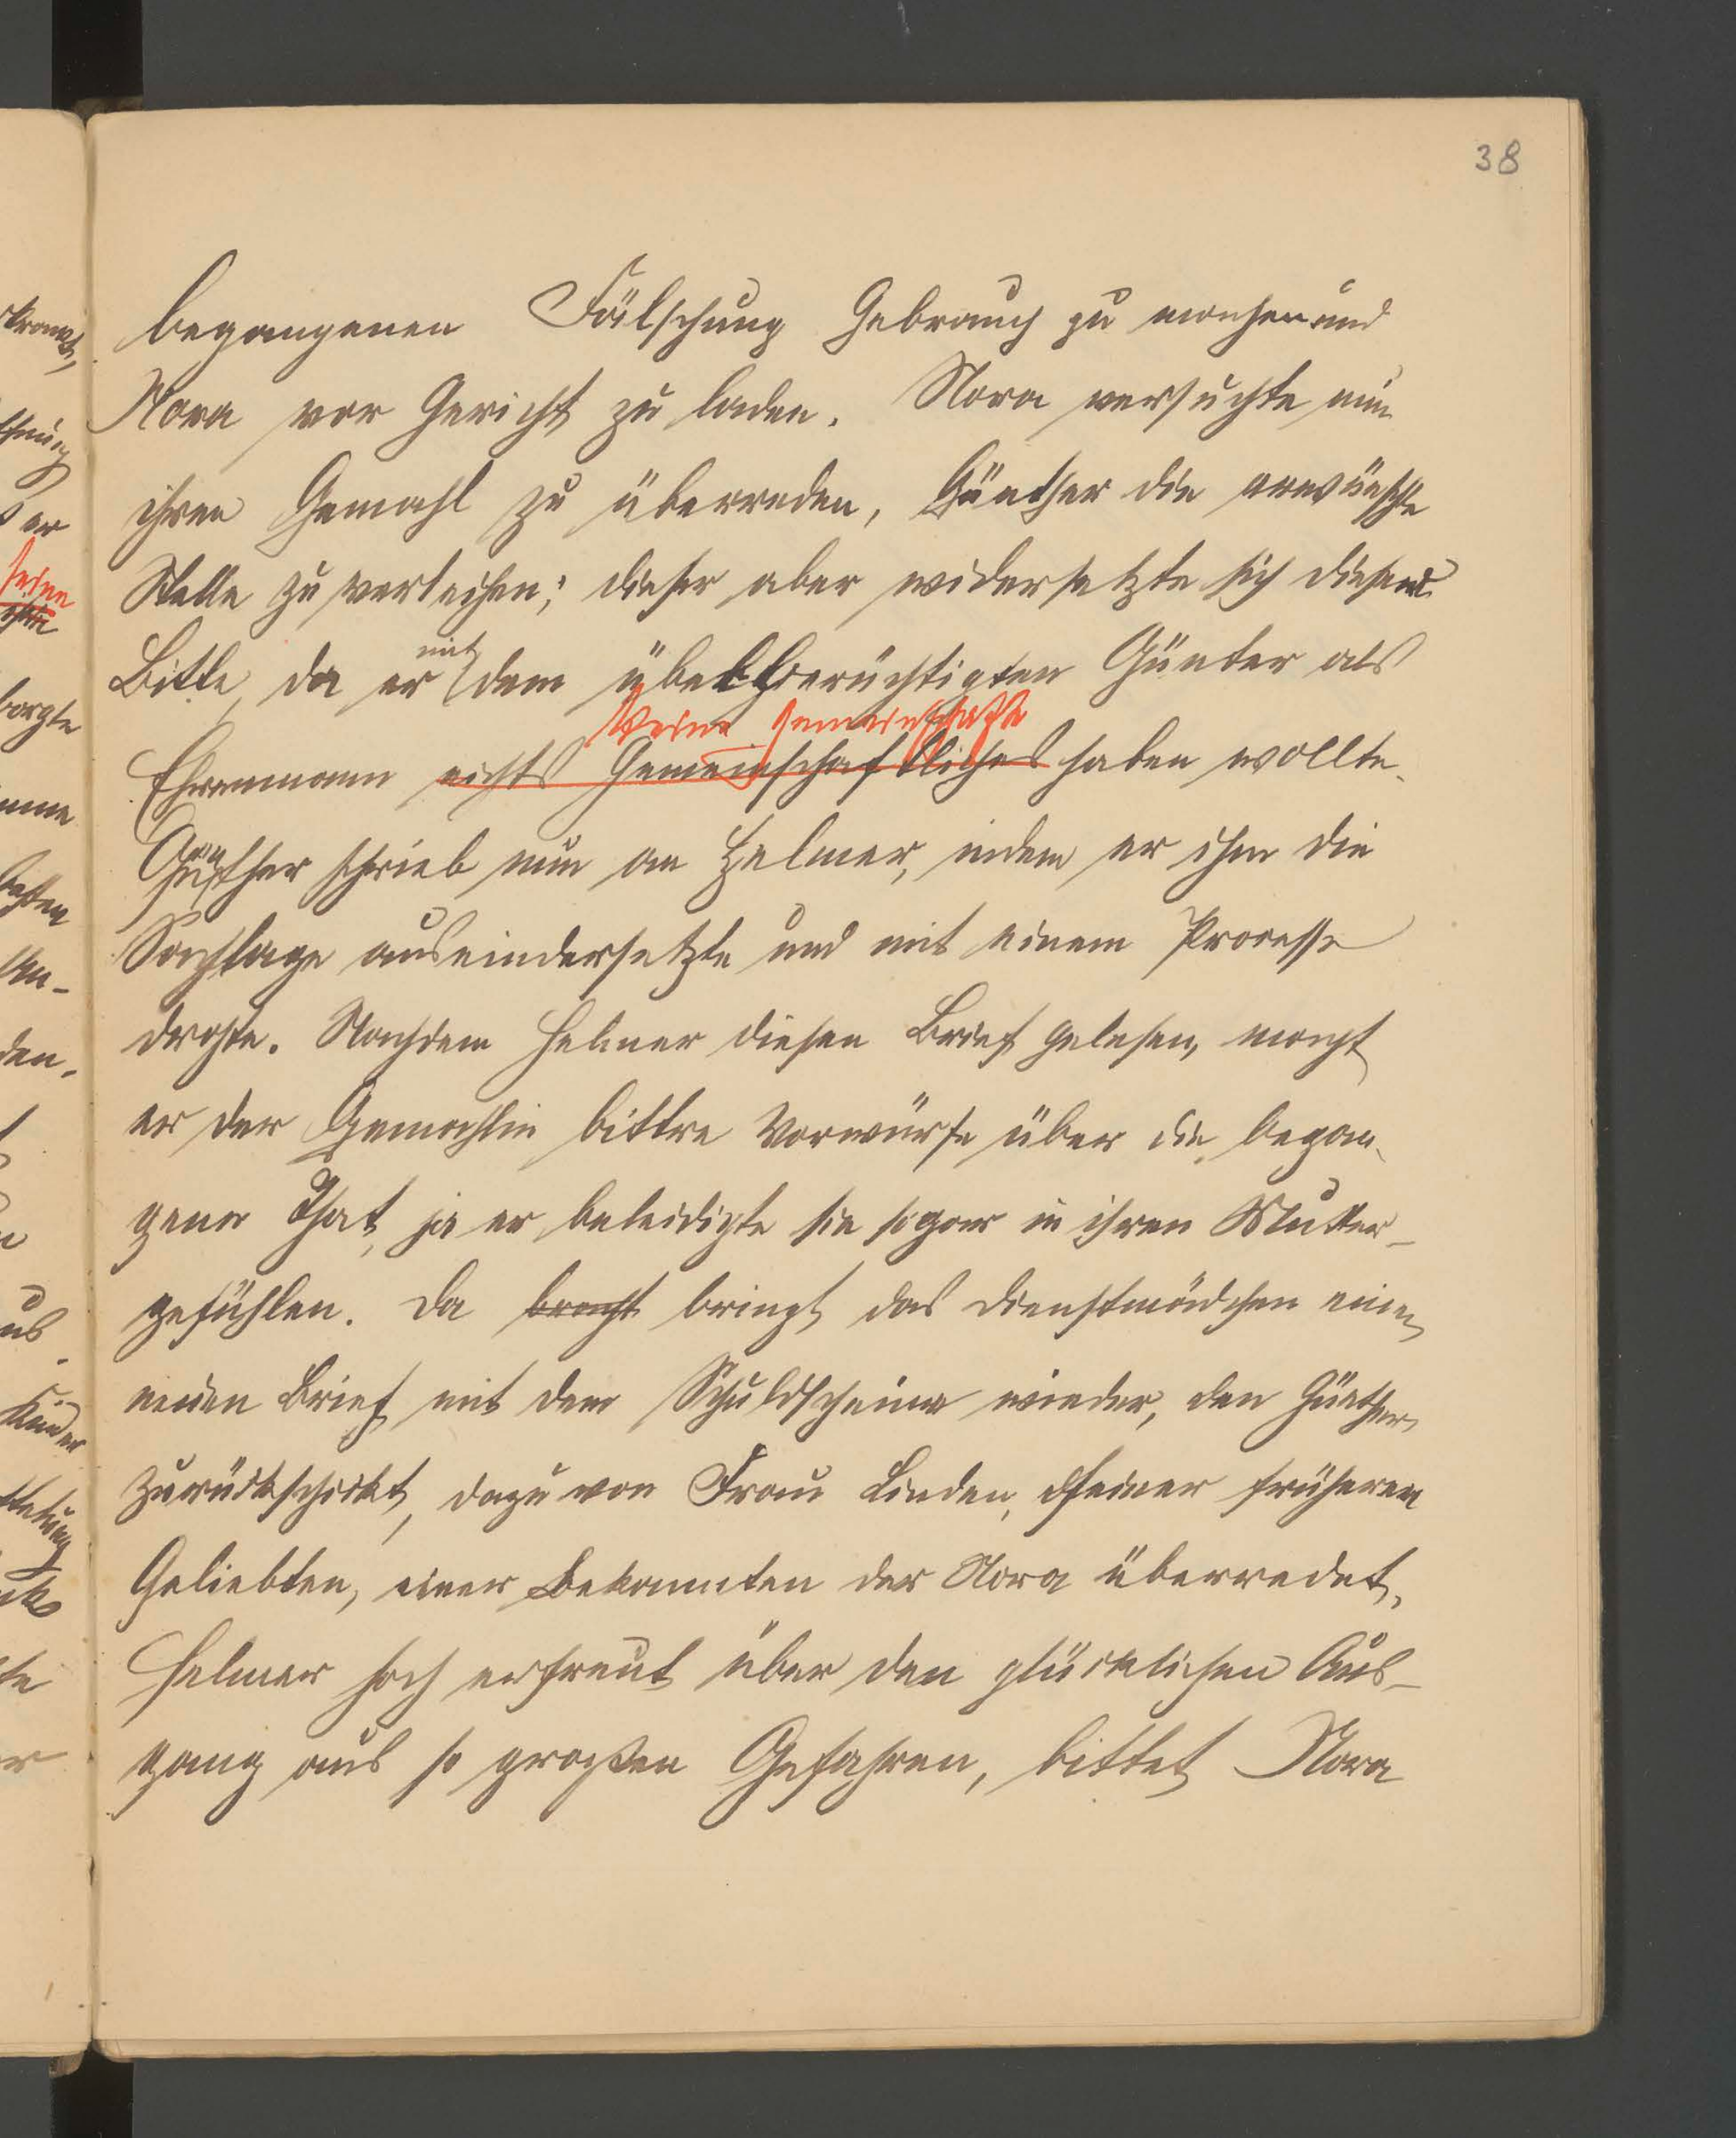 38
begangenen Fälschung Gebrauch zu machen und
Nora vor Gericht zu laden. Nora versuchte nun
ihren Gemahl zu überreden, Günther die erwünschte
Stelle zu verleihen; dieser aber widersetzte sich dieser
Bitte, da er mit dem übelberüchtigten Günter als
keine Gemeinschaft
Ehrenmann nichts Gemeinschaftliches haben wollte.
Günther schrieb nun an Helmer, indem er ihm die
Sachlage auseindersetzte und mit einem Processe
drohte. Nachdem Helmer diesen Brief gelesen, macht
er der Gemahlin bittre Vorwürfe über die began-
gene That, ja er beleidigte sie sogar in ihren Mutter-
gefühlen. Da bracht bringt das Dienstmädchen einen
neuen Brief mit dem Schuldscheine wieder, den Günther
zurückschickt, dazu von Frau Linden, seiner früheren
Geliebten, einer Bekannten der Nora überredet.
Helmer hoch erfreut über den glücklichen Aus-
gang aus so großen Gefahren, bittet Nora